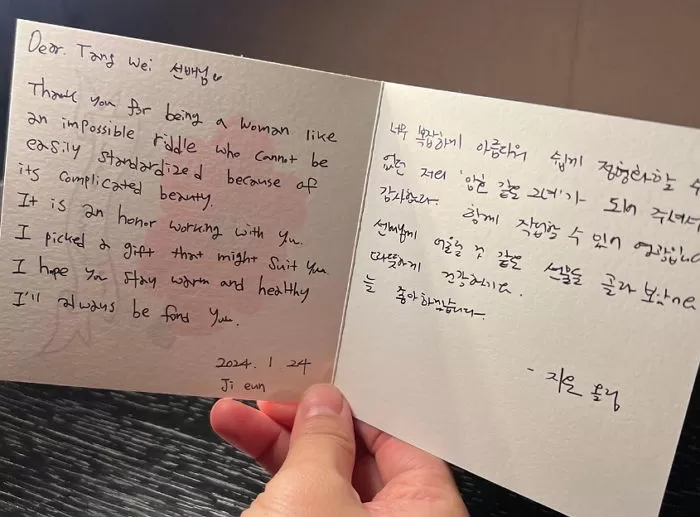 Dear. Tang Wei 선배님
Thank you for being a woman like
an impossible riddle who cannot be
easily standardized because of
its complicated beauty.
It is an honor working with you.
I picked a gift that might suit you.
I hope you stay warm and healthy
I'll always be fond you.
2024. 1 24
Ji eun
너무 복잡하게 아름다워 쉽게 정형화할 수
없던 저의 '암호 같은 그녀'가 되어 주셔서
감사합니다. 함께 작업할 수 있어 영광입니다
선배님께 어울릴 것 같은 선물을 골라 보았어요
따뜻하게 건강하시길.
늘 좋아하겠습니다.
- 지은 올림